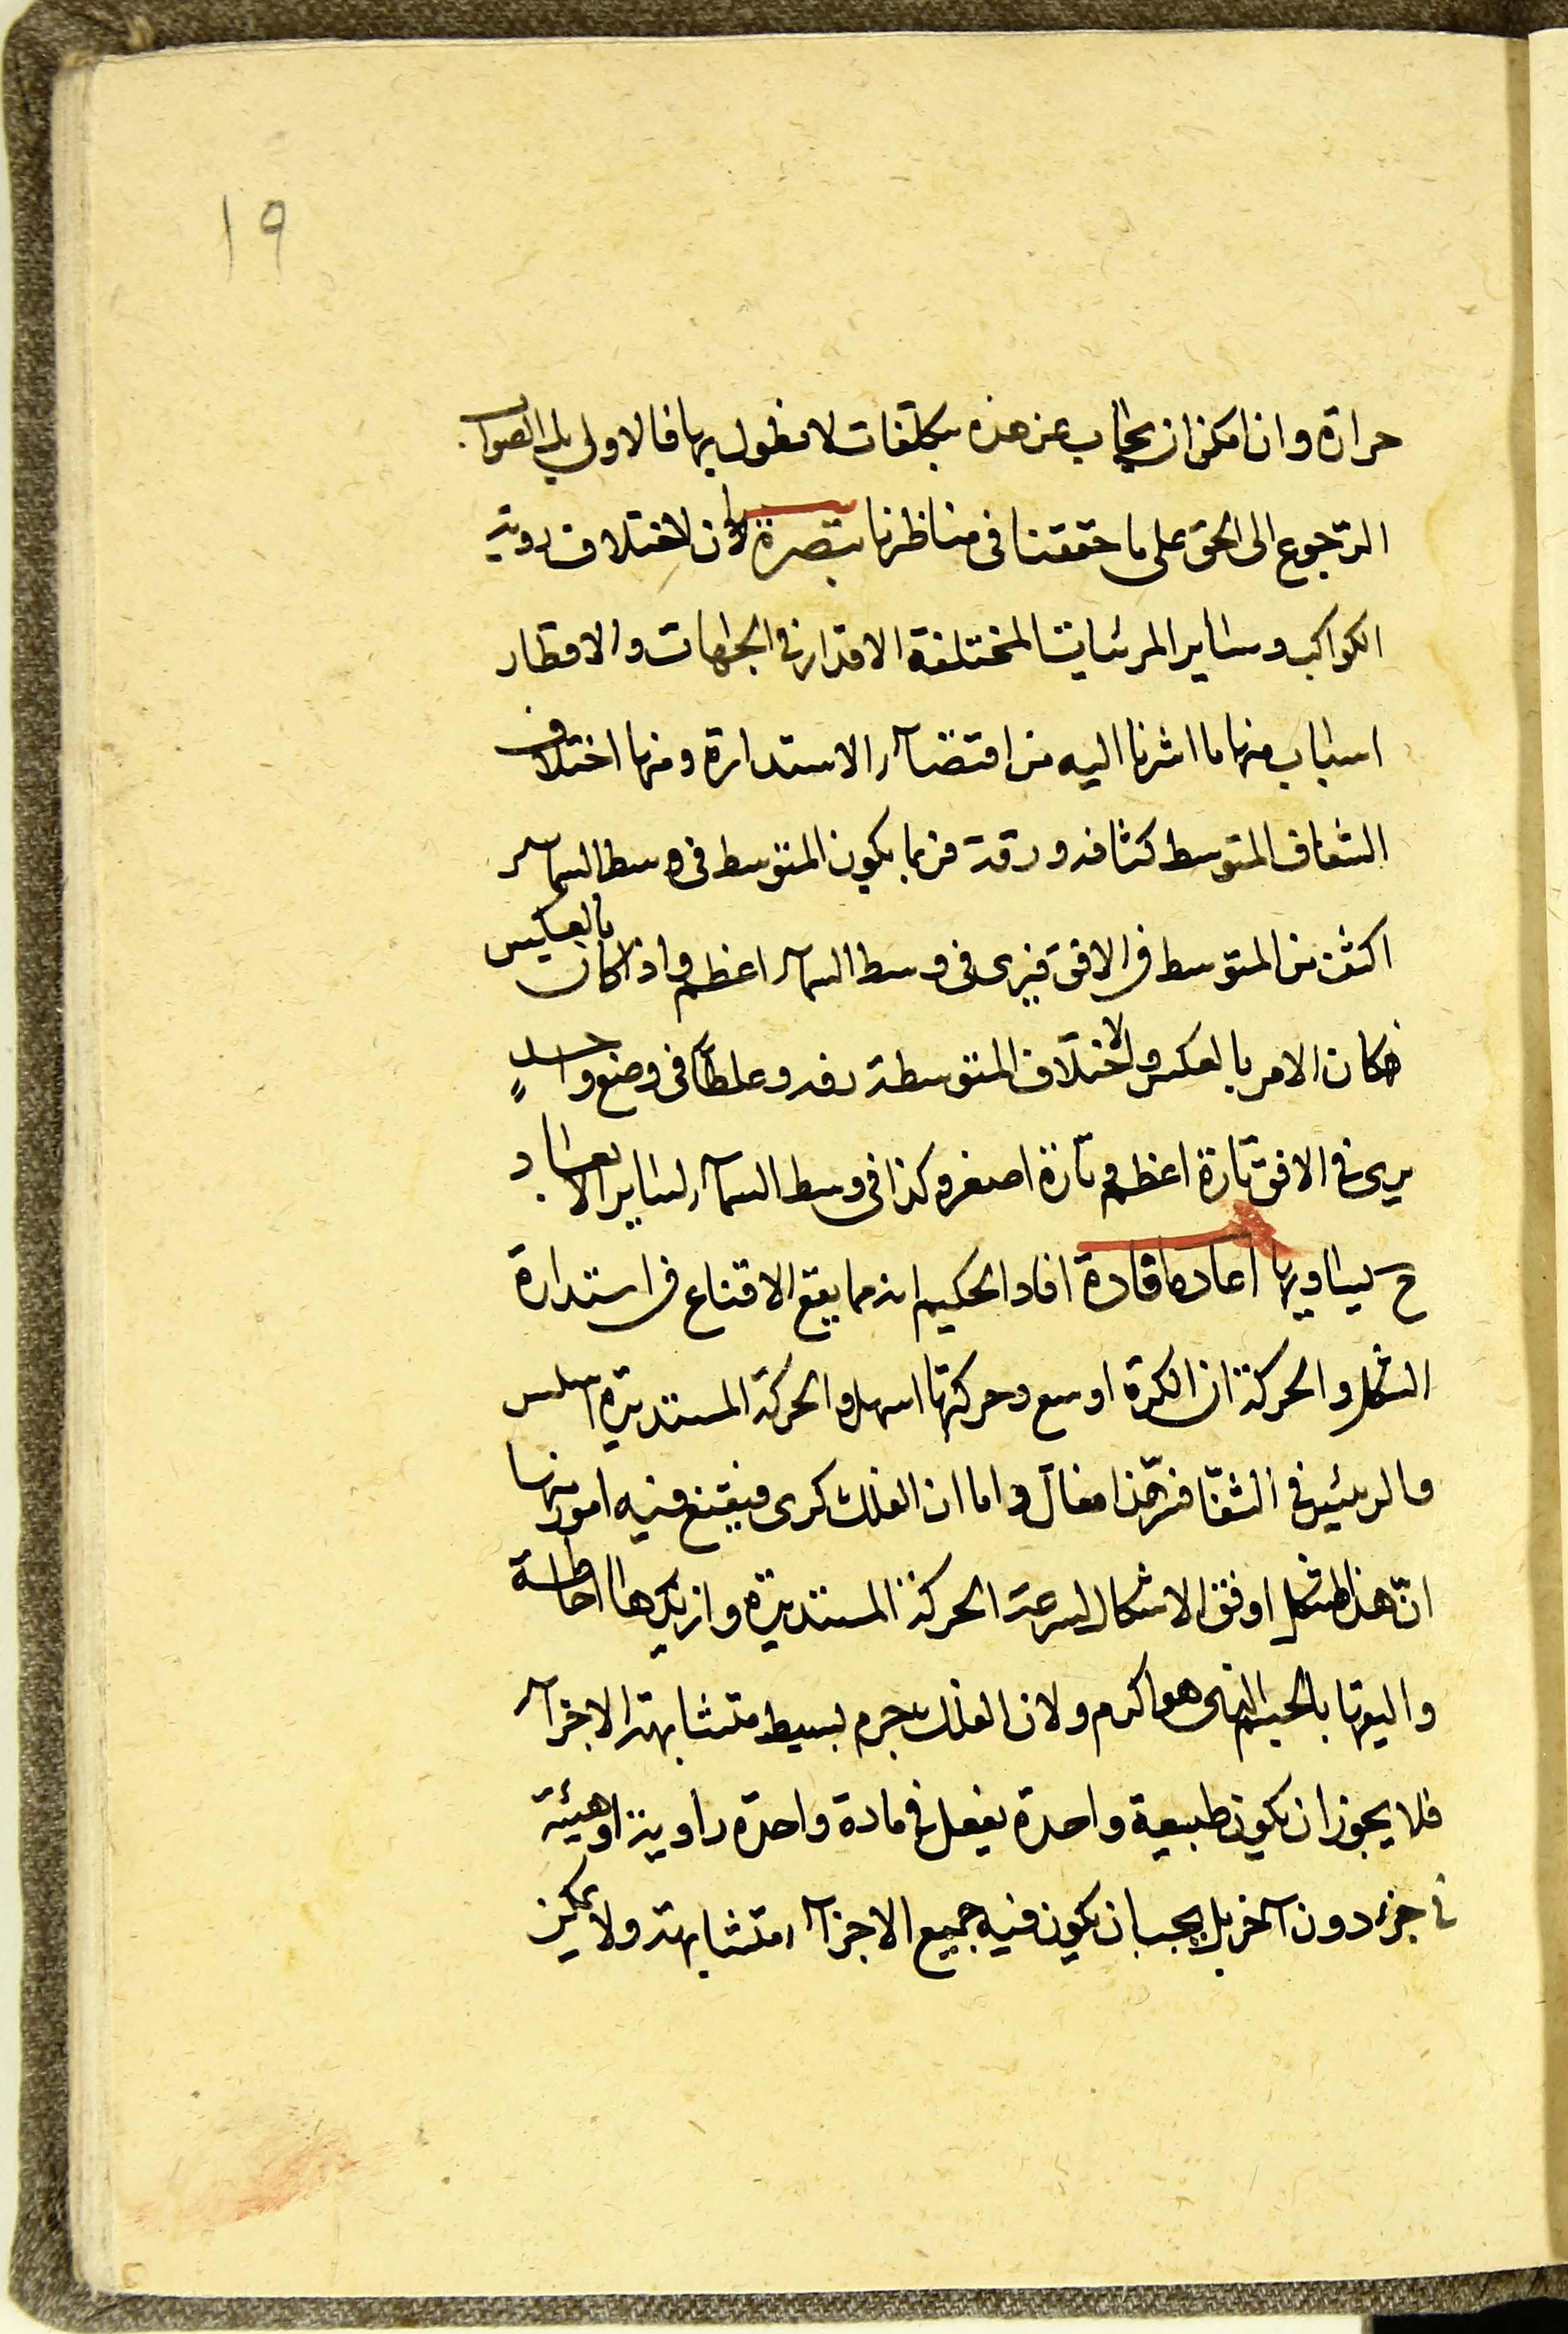 ١٩
حرارة وان امكن ان يجاب عن هذه بتكلفات لا نطول بها فالاولى بل الصواب
الرجوع الى الحق على ما حققنا فى مناظرنا تبصرة لان لاختلاف روية
الكواكب وساير المرئيات المختلفة الاقدار فى الجهات والاقطار
اسباب منها ما اشرنا اليه من اقتضآء الاستدارة ومنها اختلاف
الشفاف المتوسط كثافة ورقة فربما يكون المتوسط فى وسط السمآء
اكثف من المتوسط فى الافق فيرى فى وسط السمآء اعظم واذا كان بالعكس
فكان الامر بالعكس ولاختلاف المتوسط رقة وغلظا فى وضع واحدٍ
يرى فى الافق تارة اعظم وتارة اصغر وكذا فى وسط السمآء لساير الابعاد
ح يساويها اعادة افادة افاد الحكيم انه مما يقع الاقناع فى استدارة
الشكل والحركة ان الكرة اوسع وحركتها اسهل والحركة المستديرة اسلس
والرئيس فى الشفا فسّر هذا فقال واما ان الفلك كرى فيقنع فيه امور منها
انّ هذا الشكل اوفق الاشكال لسرعة الحركة المستديرة وازيدها احاطة
واليقها بالجسم الذى هو اكرم ولان الفلك جرم بسيط متشابهة الاجزآء
فلا يجوز ان يكون طبيعة واحدة يفعل فى مادة واحدة زاوية او هيئة
فى جزء دون آخر بل يجب ان يكون فيه جميع الاجزآء متشابهة ولا يمكن